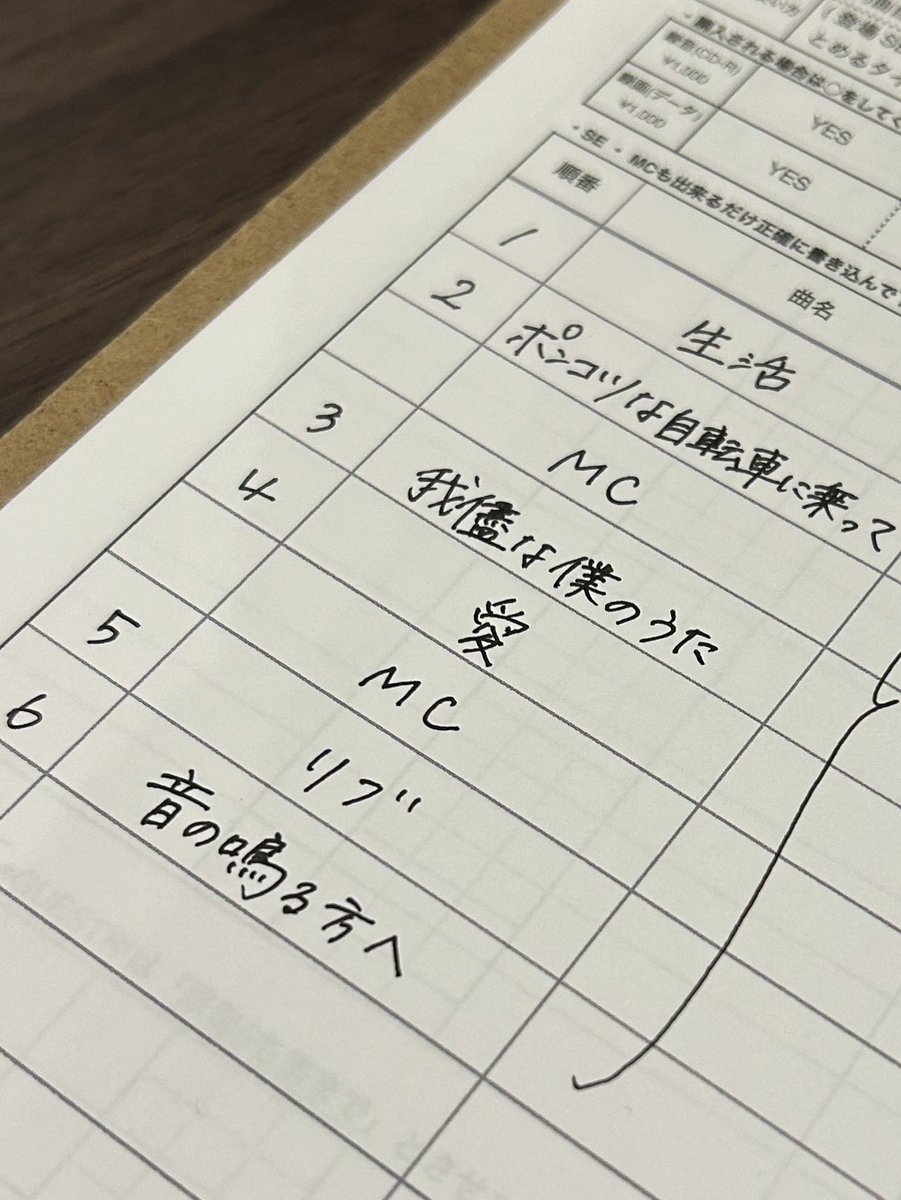 とめるタイ
・購入される場合は○をしてく
録音(CD-R)
¥1,000
YES
録画(データ)
¥1,000
YES
・SE・MCも出来るだけ正確に書き込んで
順番 曲名
1 生活
2 ポンコツな自転車に乗って
MC
3 我儘な僕のうた
4 愛
MC
5 リブ
6 音の鳴る方へ